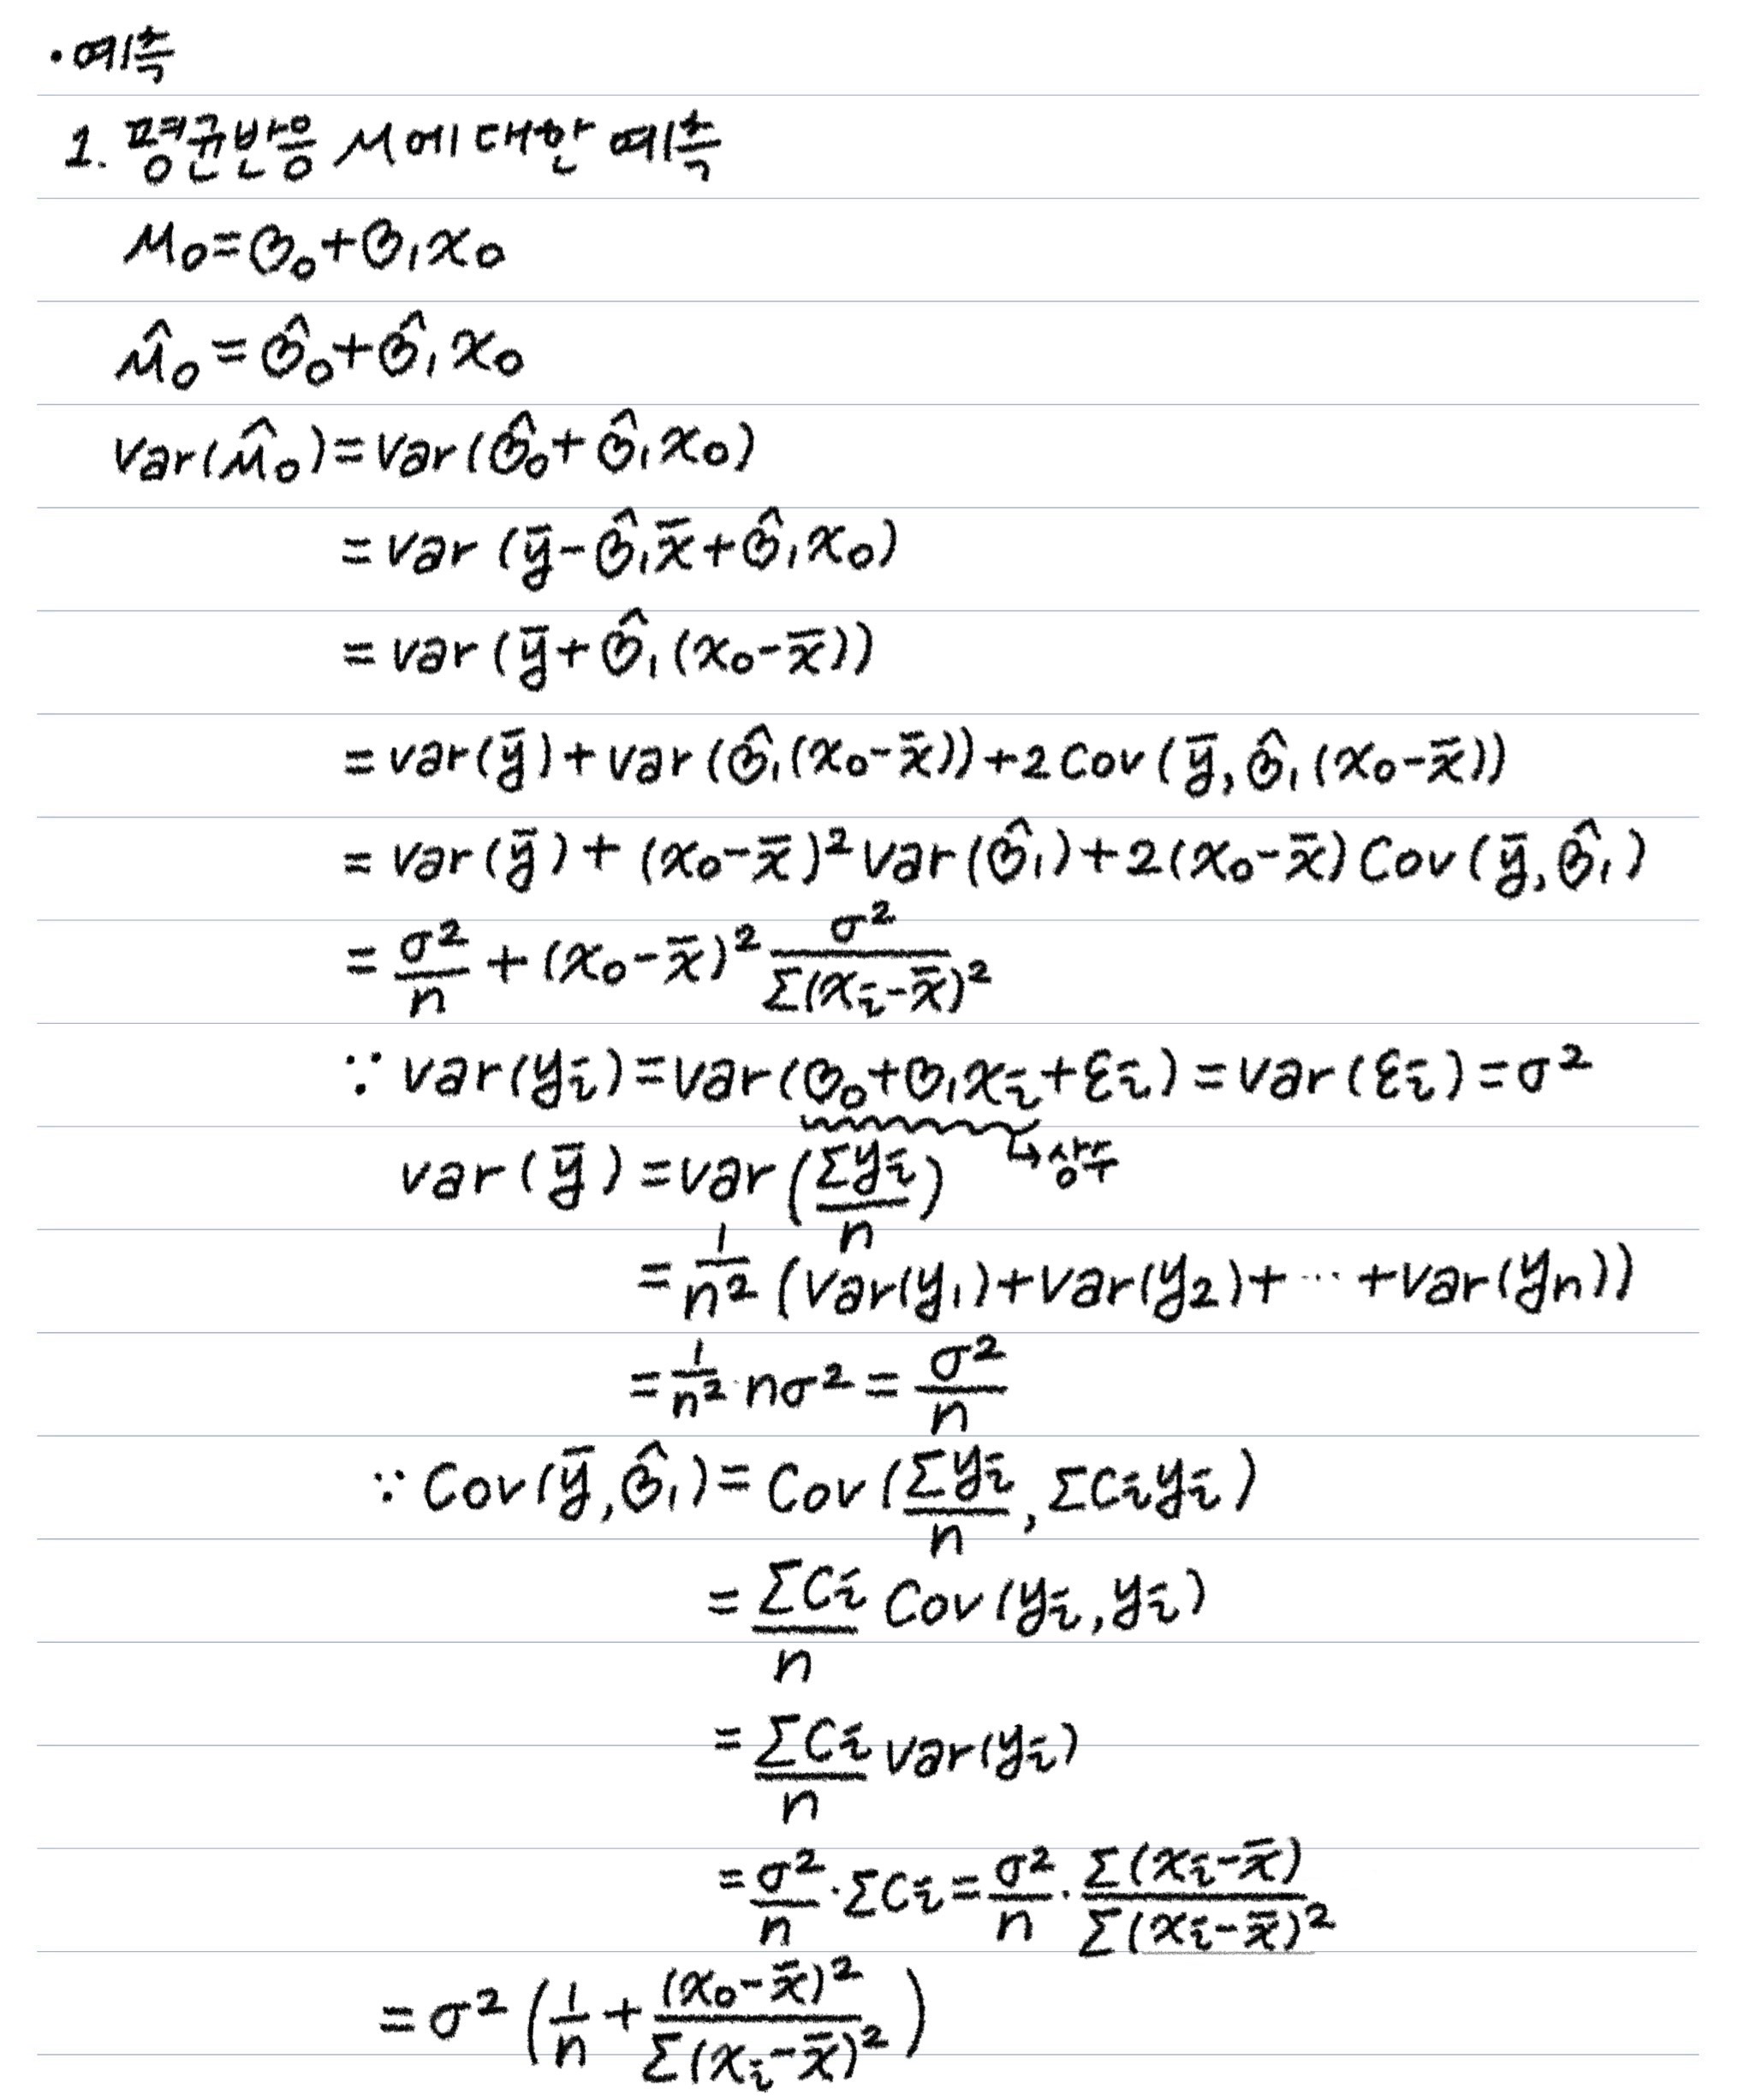 ·예측
1. 평균반응 μ에 대한 예측
μ₀=β₀+β₁x₀
μ̂₀=β̂₀+β̂₁x₀
var(μ̂₀)=var(β̂₀+β̂₁x₀)
=var(ȳ-β̂₁x̄+β̂₁x₀)
=var(ȳ+β̂₁(x₀-x̄))
=var(ȳ)+var(β̂₁(x₀-x̄))+2Cov(ȳ,β̂₁(x₀-x̄))
=var(ȳ)+(x₀-x̄)²var(β̂₁)+2(x₀-x̄)Cov(ȳ,β̂₁)
=σ²/n+(x₀-x̄)² σ²/Σ(xᵢ-x̄)²
∵ var(yᵢ)=var(β₀+β₁xᵢ+εᵢ)=var(εᵢ)=σ²
↳상수
var(ȳ)=var(Σyᵢ/n)
=1/n² (var(y₁)+var(y₂)+⋯+var(yn))
=1/n²·nσ²=σ²/n
∵ Cov(ȳ,β̂₁)=Cov(Σyᵢ/n,Σcᵢyᵢ)
=Σcᵢ/n Cov(yᵢ,yᵢ)
=Σcᵢ/n var(yᵢ)
=σ²/n·Σcᵢ=σ²/n·Σ(xᵢ-x̄)/Σ(xᵢ-x̄)²
=σ²(1/n+(x₀-x̄)²/Σ(xᵢ-x̄)²)